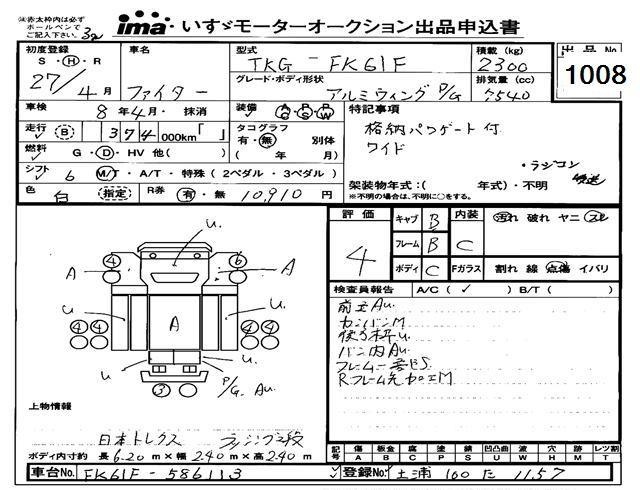 ㊟赤太枠内は必ず
ボールペンで
ご記入下さい。
ima いすゞモーターオークション出品申込書
初度登録
S・H・R
27/4月
車名
ファイター
型式
TKG-FK61F
グレード・ボディ形状
アルミウィング P/G
積載(kg)
2300
排気量(cc)
7540
出品No
1008
車検
8年4月・抹消
装備
AC・PS・PW
特記事項
格納パワゲート付
ワイド
・ラジコン
走行 B 374000km「 」
タコグラフ
有・無 別体
( 年 月)
燃料 G・D・HV 他( )
シフト 6 M/T・A/T・特殊(2ペダル・3ペダル)
架装物年式:( 年式)・不明
※不明の場合は、不明に○をする。
色 白 (指定)
R券 有・無 10,910円
評価
4
キャブ B
フレーム B
ボディ C
内装 C
Fガラス
汚れ 破れ ヤニ スレ
割れ 線 点傷 イバリ
検査員報告 A/C(✓) B/T( )
前立Au.
カンバンM
後ろ枠u.
バン内Au
フレーム一番R S
Rフレーム先加工M
④ A u. A ⑥
u. u.
A
④④ ④④
u u.
③ P/G. Au.
上物情報
日本トレクス ラッシング2段
ボディ内寸約 長6.20m×幅2.40m×高2.40m
記号 傷A 板金B 腐C 塗P 錆S 凹凸曲U 波W 穴H 外M レツ割T
車台No. FK61F-586113
登録No. 土浦 100 た 1157